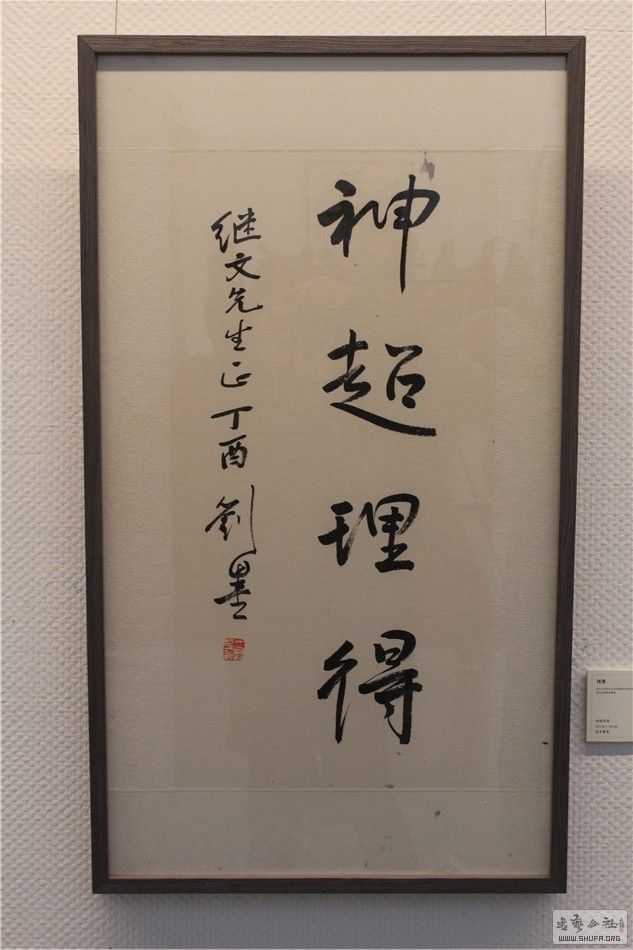 神超理得
继文先生正丁酉劉墨
书艺公社
WWW.SHUFA.ORG